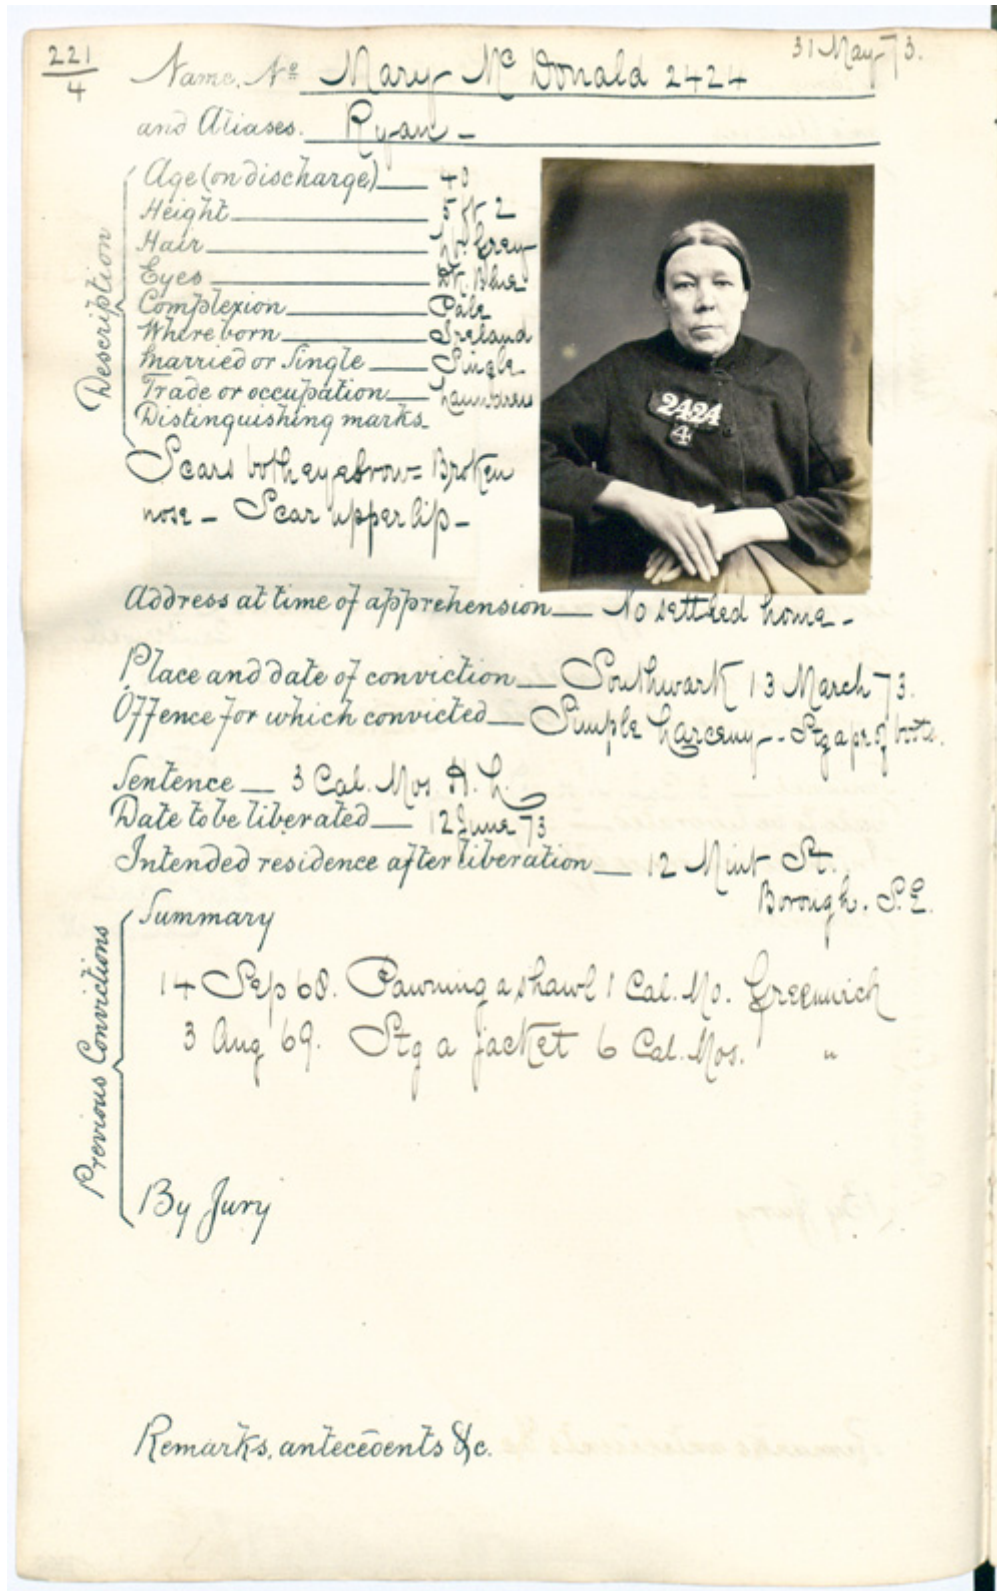 221
4
31 May 73.
Name, No Mary Mc Donald 2424
and Aliases. Ryan -
Description
Age (on discharge) 40
Height 5 ft 2
Hair Lt. Grey
Eyes Dk. Blue
Complexion Pale
Where born Ireland
Married or Single Single
Trade or occupation Laundress
Distinguishing marks
Scars both eyebrow = Broken
nose - Scar upper lip -
2424
4
Address at time of apprehension No settled home -
Place and date of conviction Southwark 13 March 73.
Offence for which convicted Simple Larceny - Stg a pr of boots.
Sentence 3 Cal. Mos H. L.
Date to be liberated 12 June 73
Intended residence after liberation 12 Mint St.
Borough. S.E.
Previous Convictions
Summary
14 Sep 68. Pawning a shawl 1 Cal. Mo. Greenwich
3 Aug 69. Stg a jacket 6 Cal. Mos. "
By Jury
Remarks, antecedents &c.